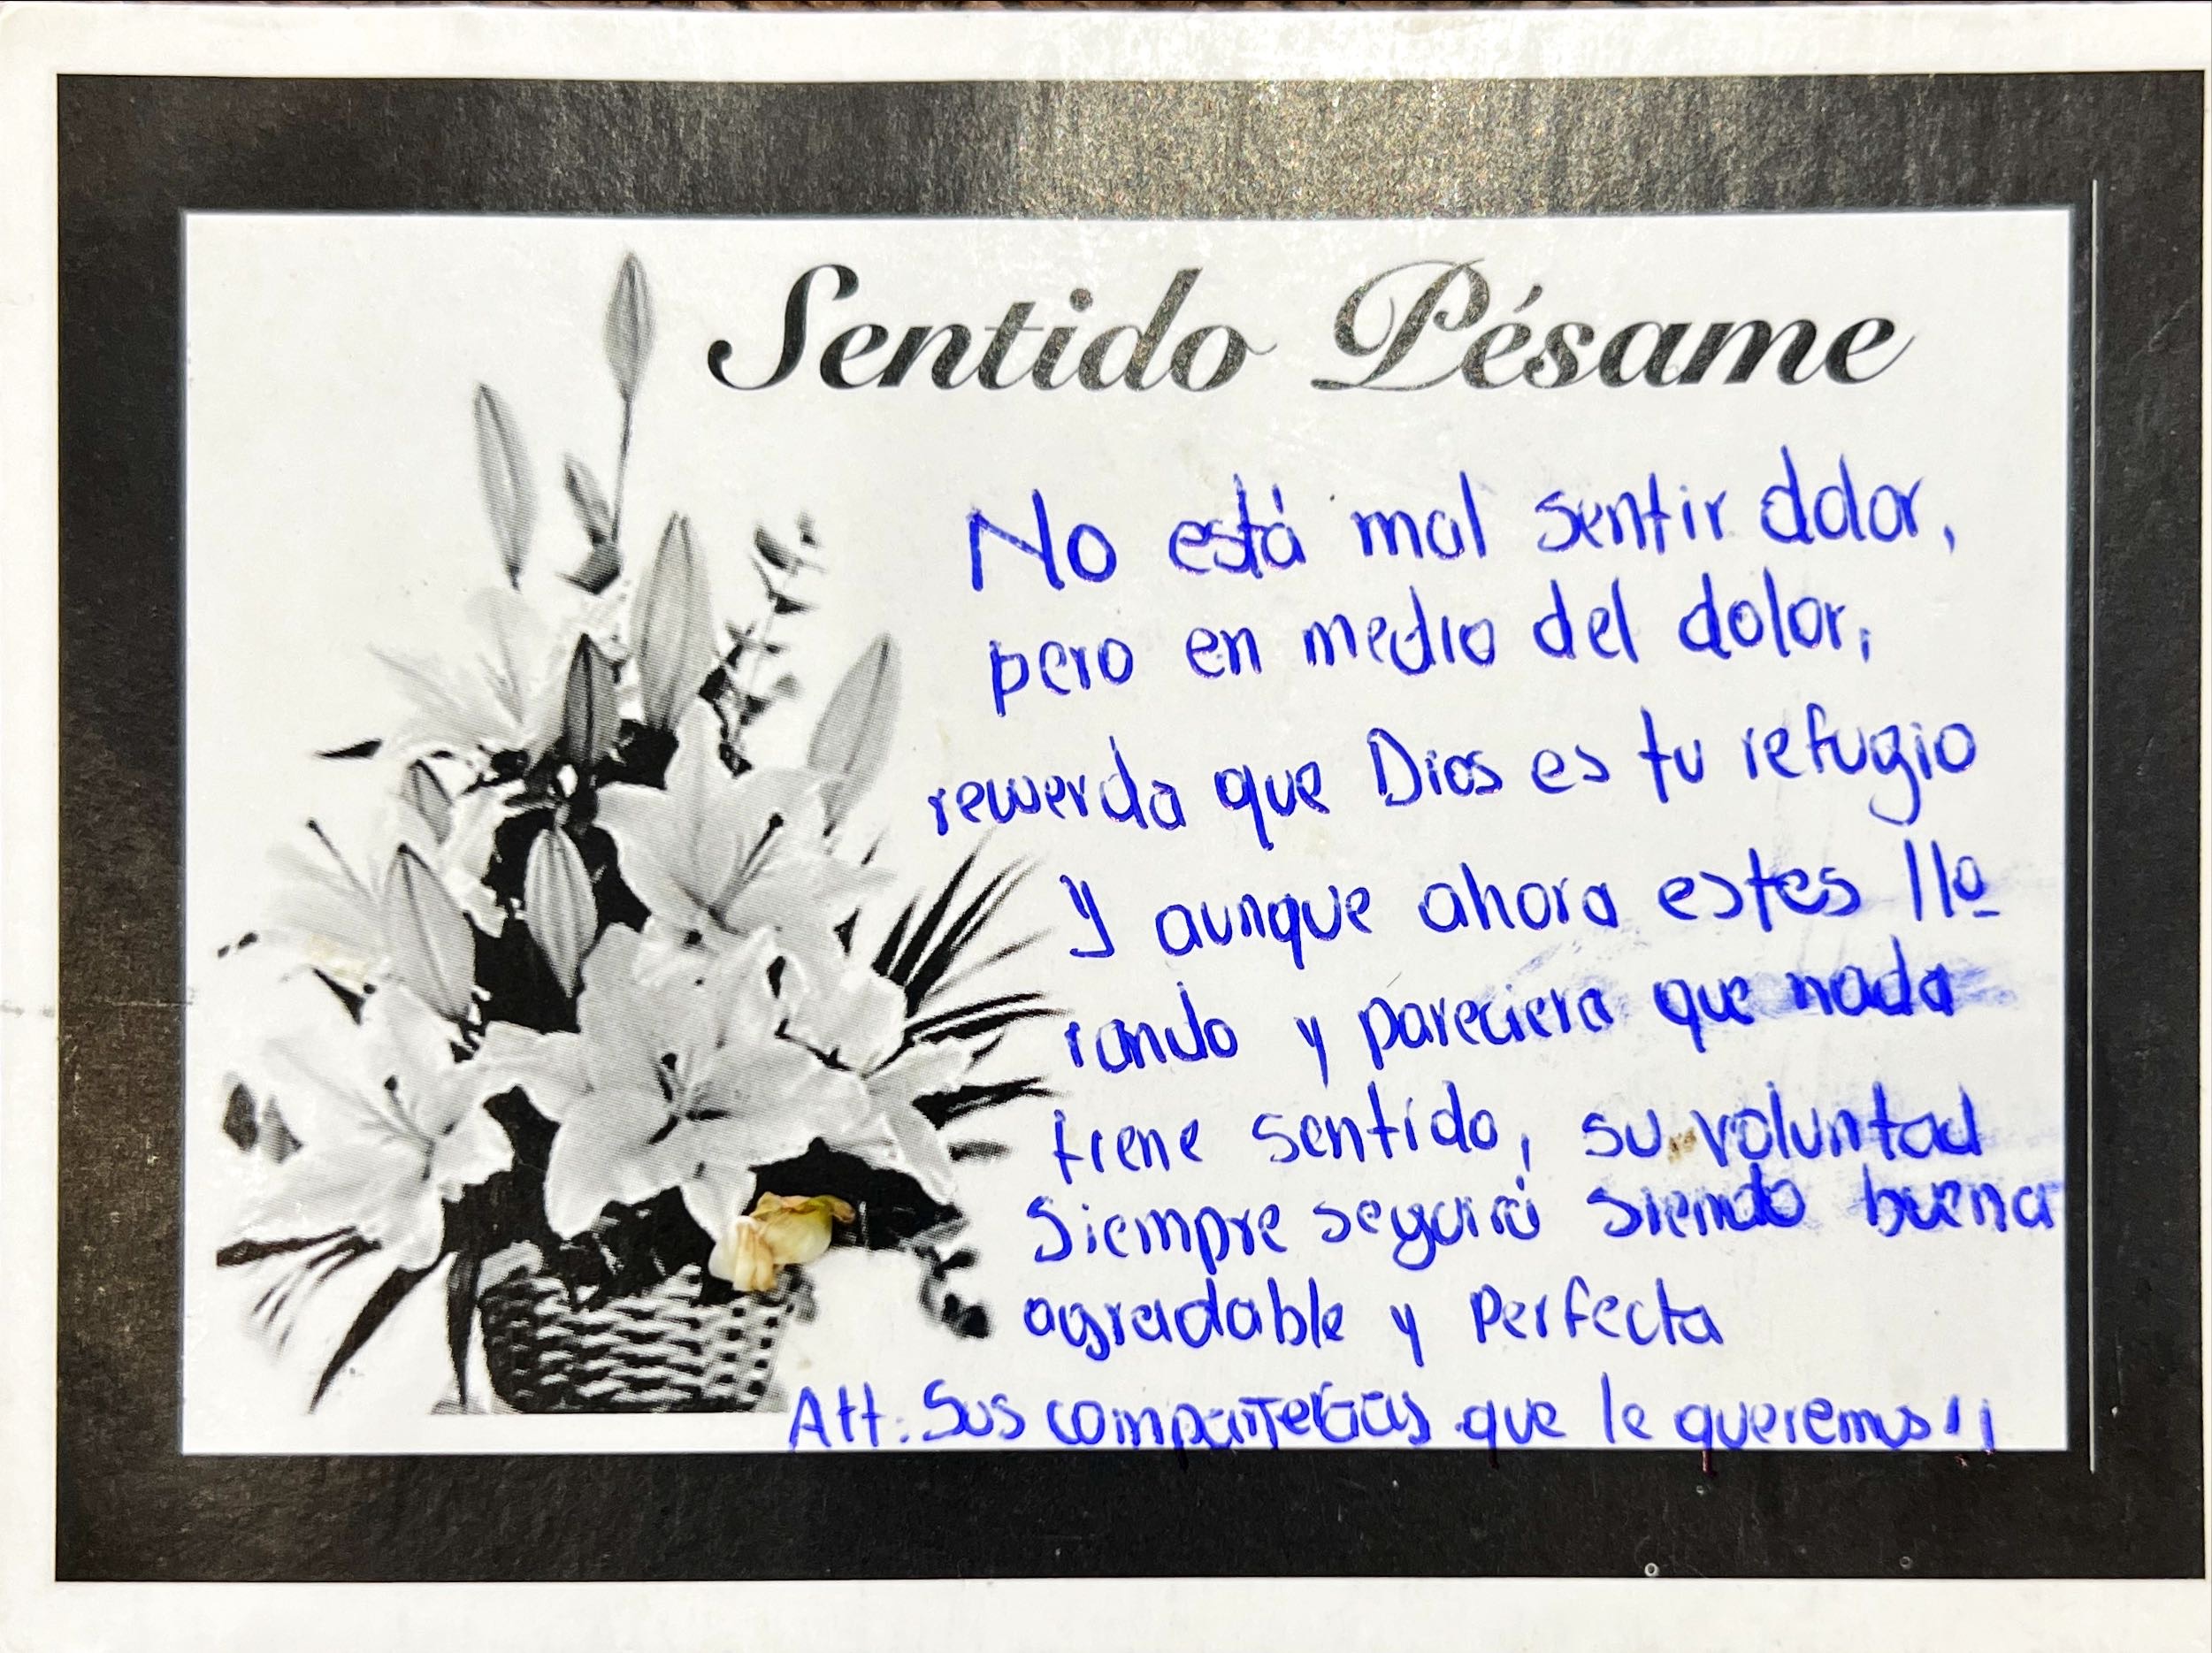 Sentido Pésame
No está mal sentir dolor,
pero en medio del dolor,
recuerda que Dios es tu refugio
Y aunque ahora estes llo
rando y pareciera que nada
tiene sentido, su voluntad
siempre seguirá siendo buena
agradable y Perfecta
Att: Sus compañeras que le queremos!!